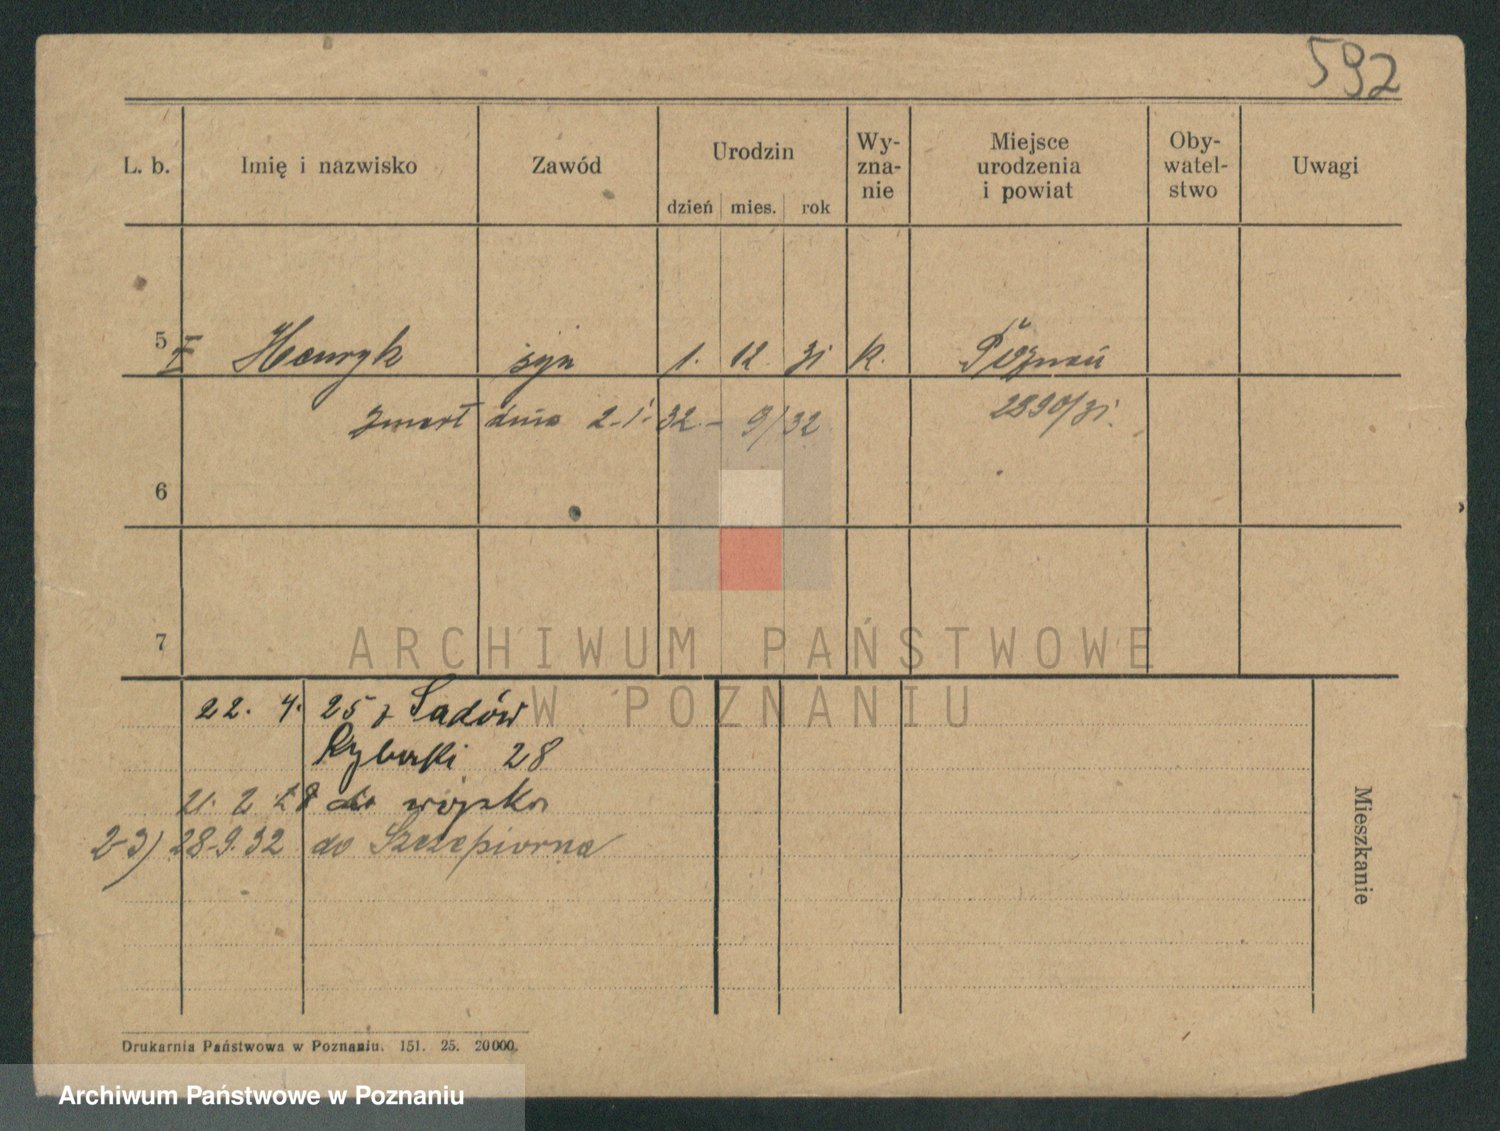 592
L. b. Imię i nazwisko Zawód Urodzin Wy-zna-nie Miejsce urodzenia i powiat Oby-watel-stwo Uwagi
dzień mies. rok
5 Henryk syn 1. 12 31 k. Poznań
zmarł dnia 2-1-32.- 9/32 2890/31.
6
7
ARCHIWUM PAŃSTWOWE
W POZNANIU
22. 4. 25 z Sadów
Rybaki 28
21. 2 28 do wojska
2-3) 28-9.32 do Szczepiorna
Mieszkanie
Drukarnia Państwowa w Poznaniu. 151. 25. 20000.
Archiwum Państwowe w Poznaniu